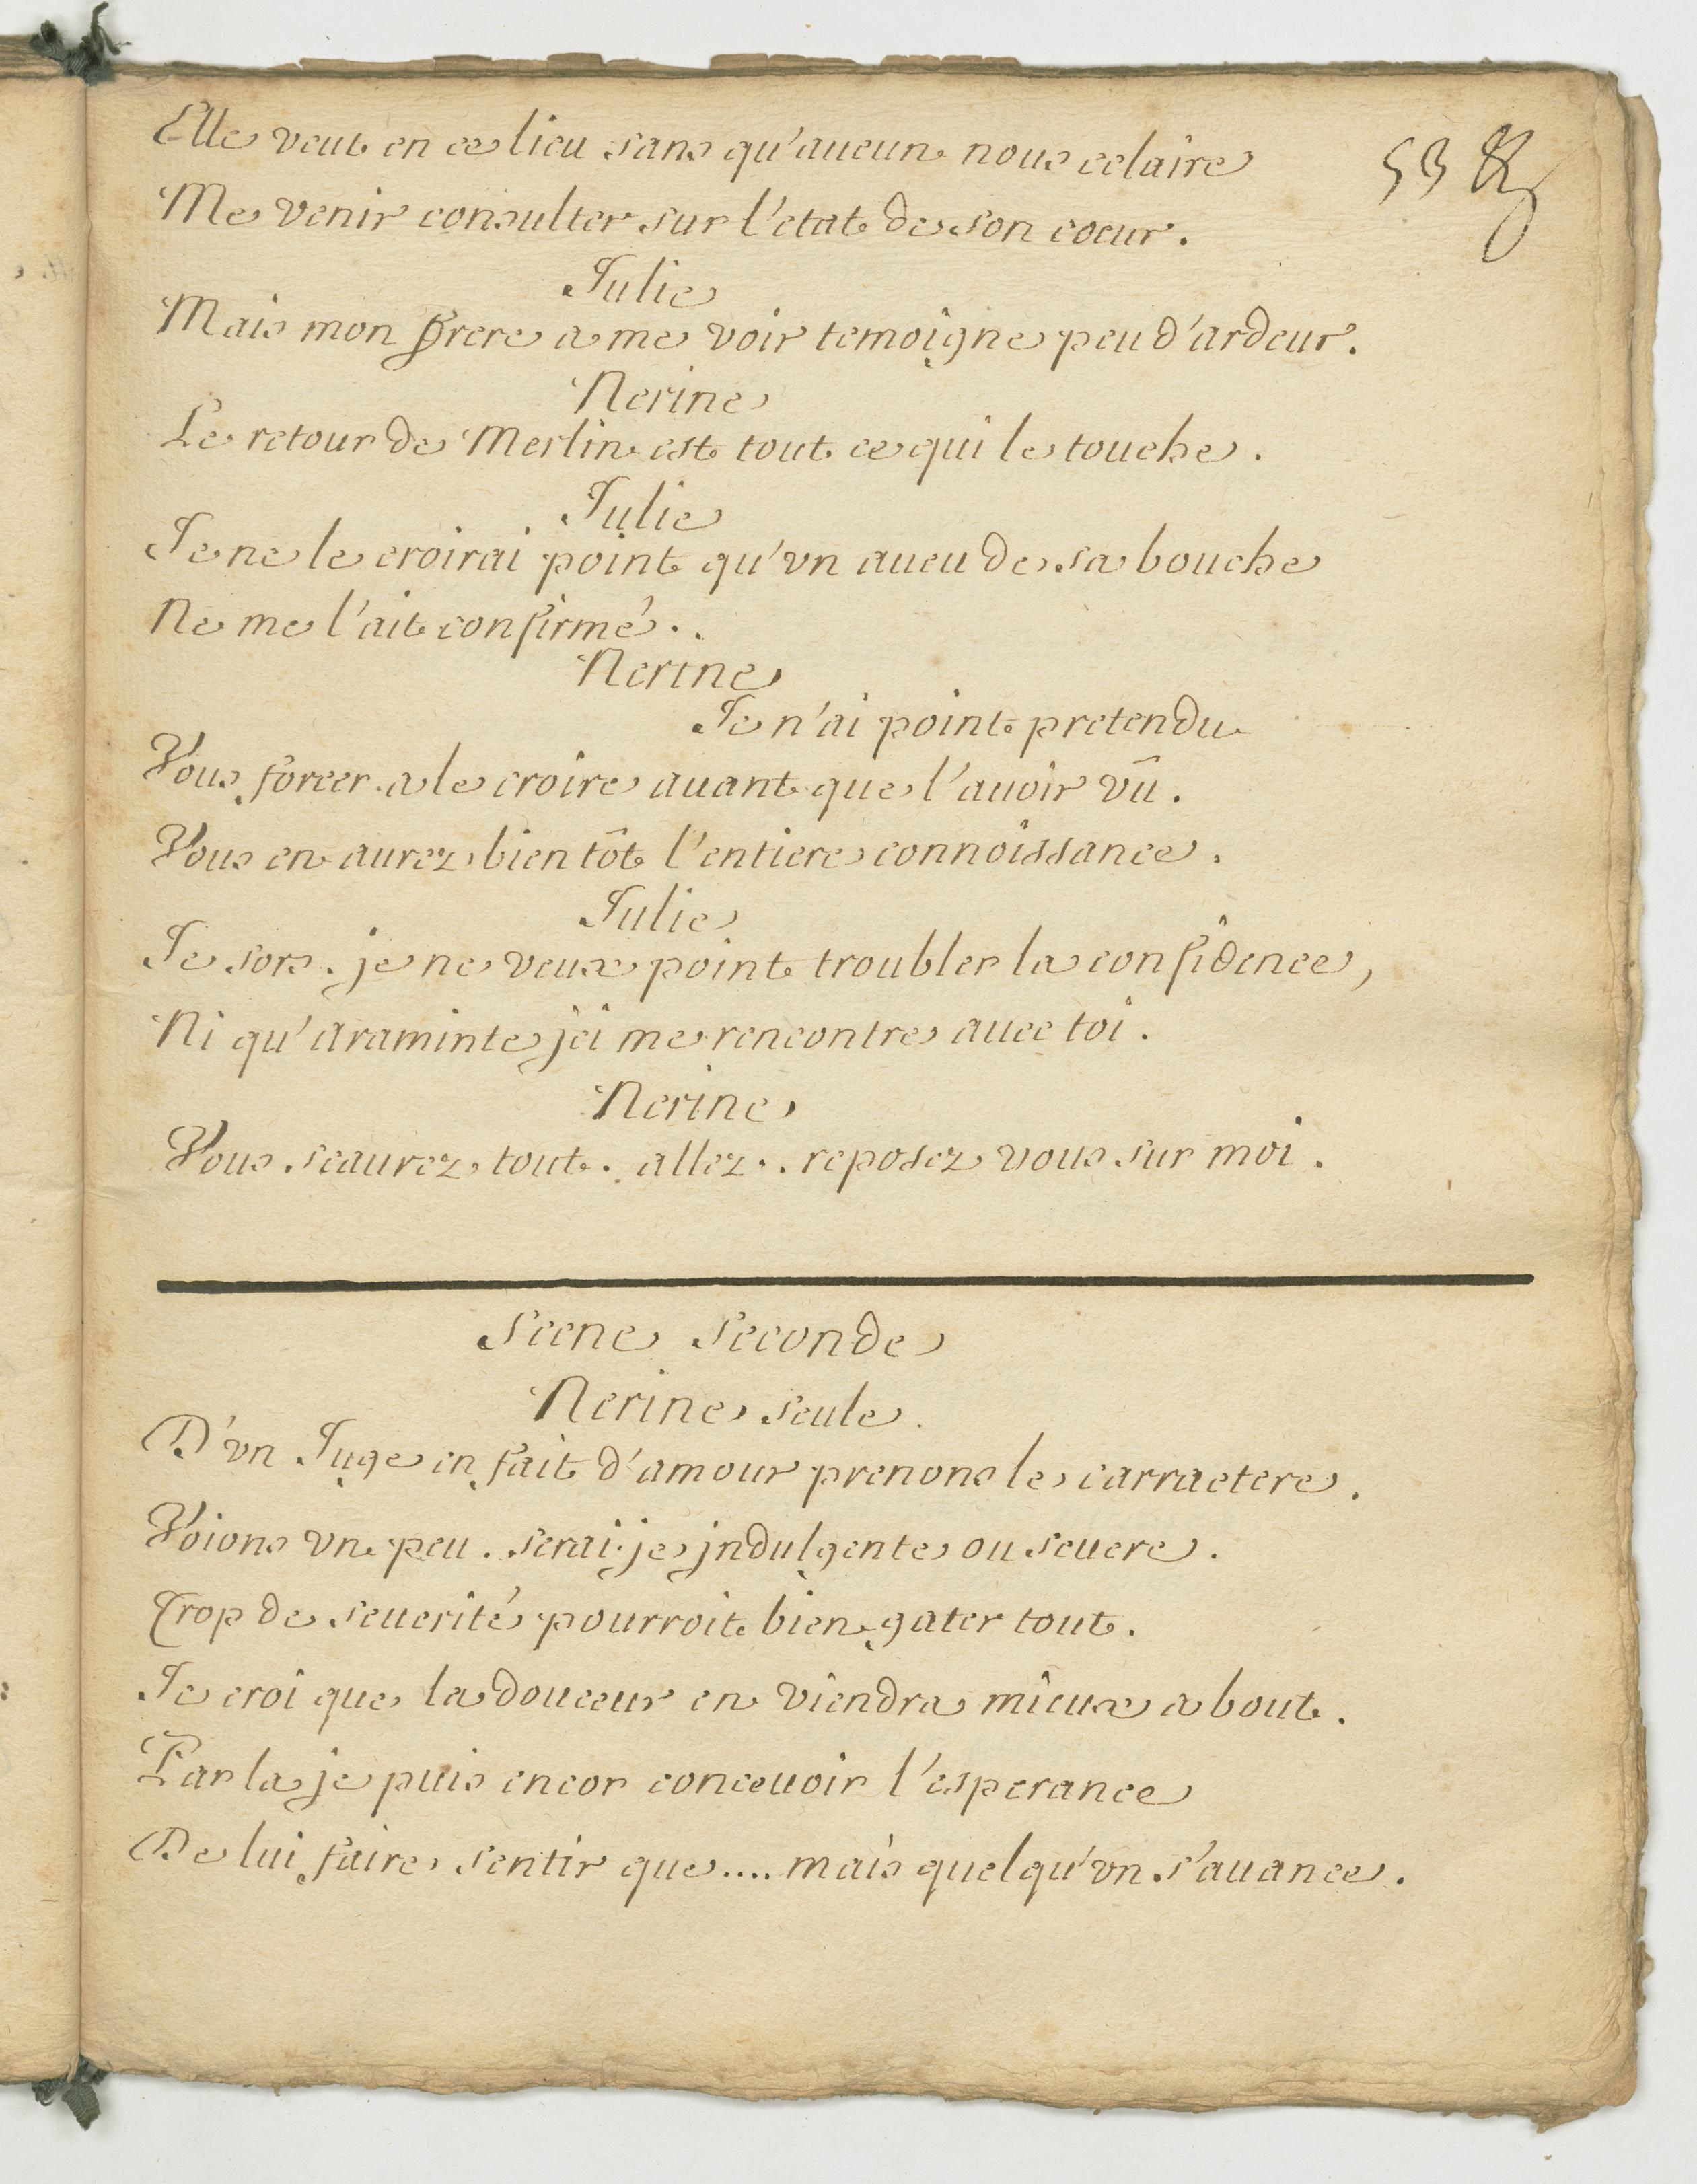 Elle veut en ce lieu sans qu'aucun nous eclaire
53
Me venir consulter sur l'etat de son coeur.
Julie
Mais mon frere a me voir temoigne peu d'ardeur.
Nerine
Le retour de Merlin est tout ce qui le touche.
Julie
Je ne le croirai point qu'vn aueu de sa bouche
Ne me l'ait confirmé..
Nerine
Je n'ai point pretendu
Vous forcer a le croire auant que l'auoir vû.
Vous en aurez bien tôt l'entiere connoissance.
Julie
Je sors. je ne veux point troubler la confidence,
Ni qu'araminte jci me rencontre auec toi.
Nerine
Vous scaurez tout. allez.. reposez vous sur moi.
Scene Seconde
Nerine seule.
D'vn Juge en fait d'amour prenons le carractere.
Voions vn peu. serai-je jndulgente ou seuere.
Trop de seuerité pourroit bien gater tout.
Je croi que la douceur en viendra mieux a bout.
Par la je puis encor conceuoir l'esperance
De lui faire sentir que.... mais quelqu'vn s'auance.